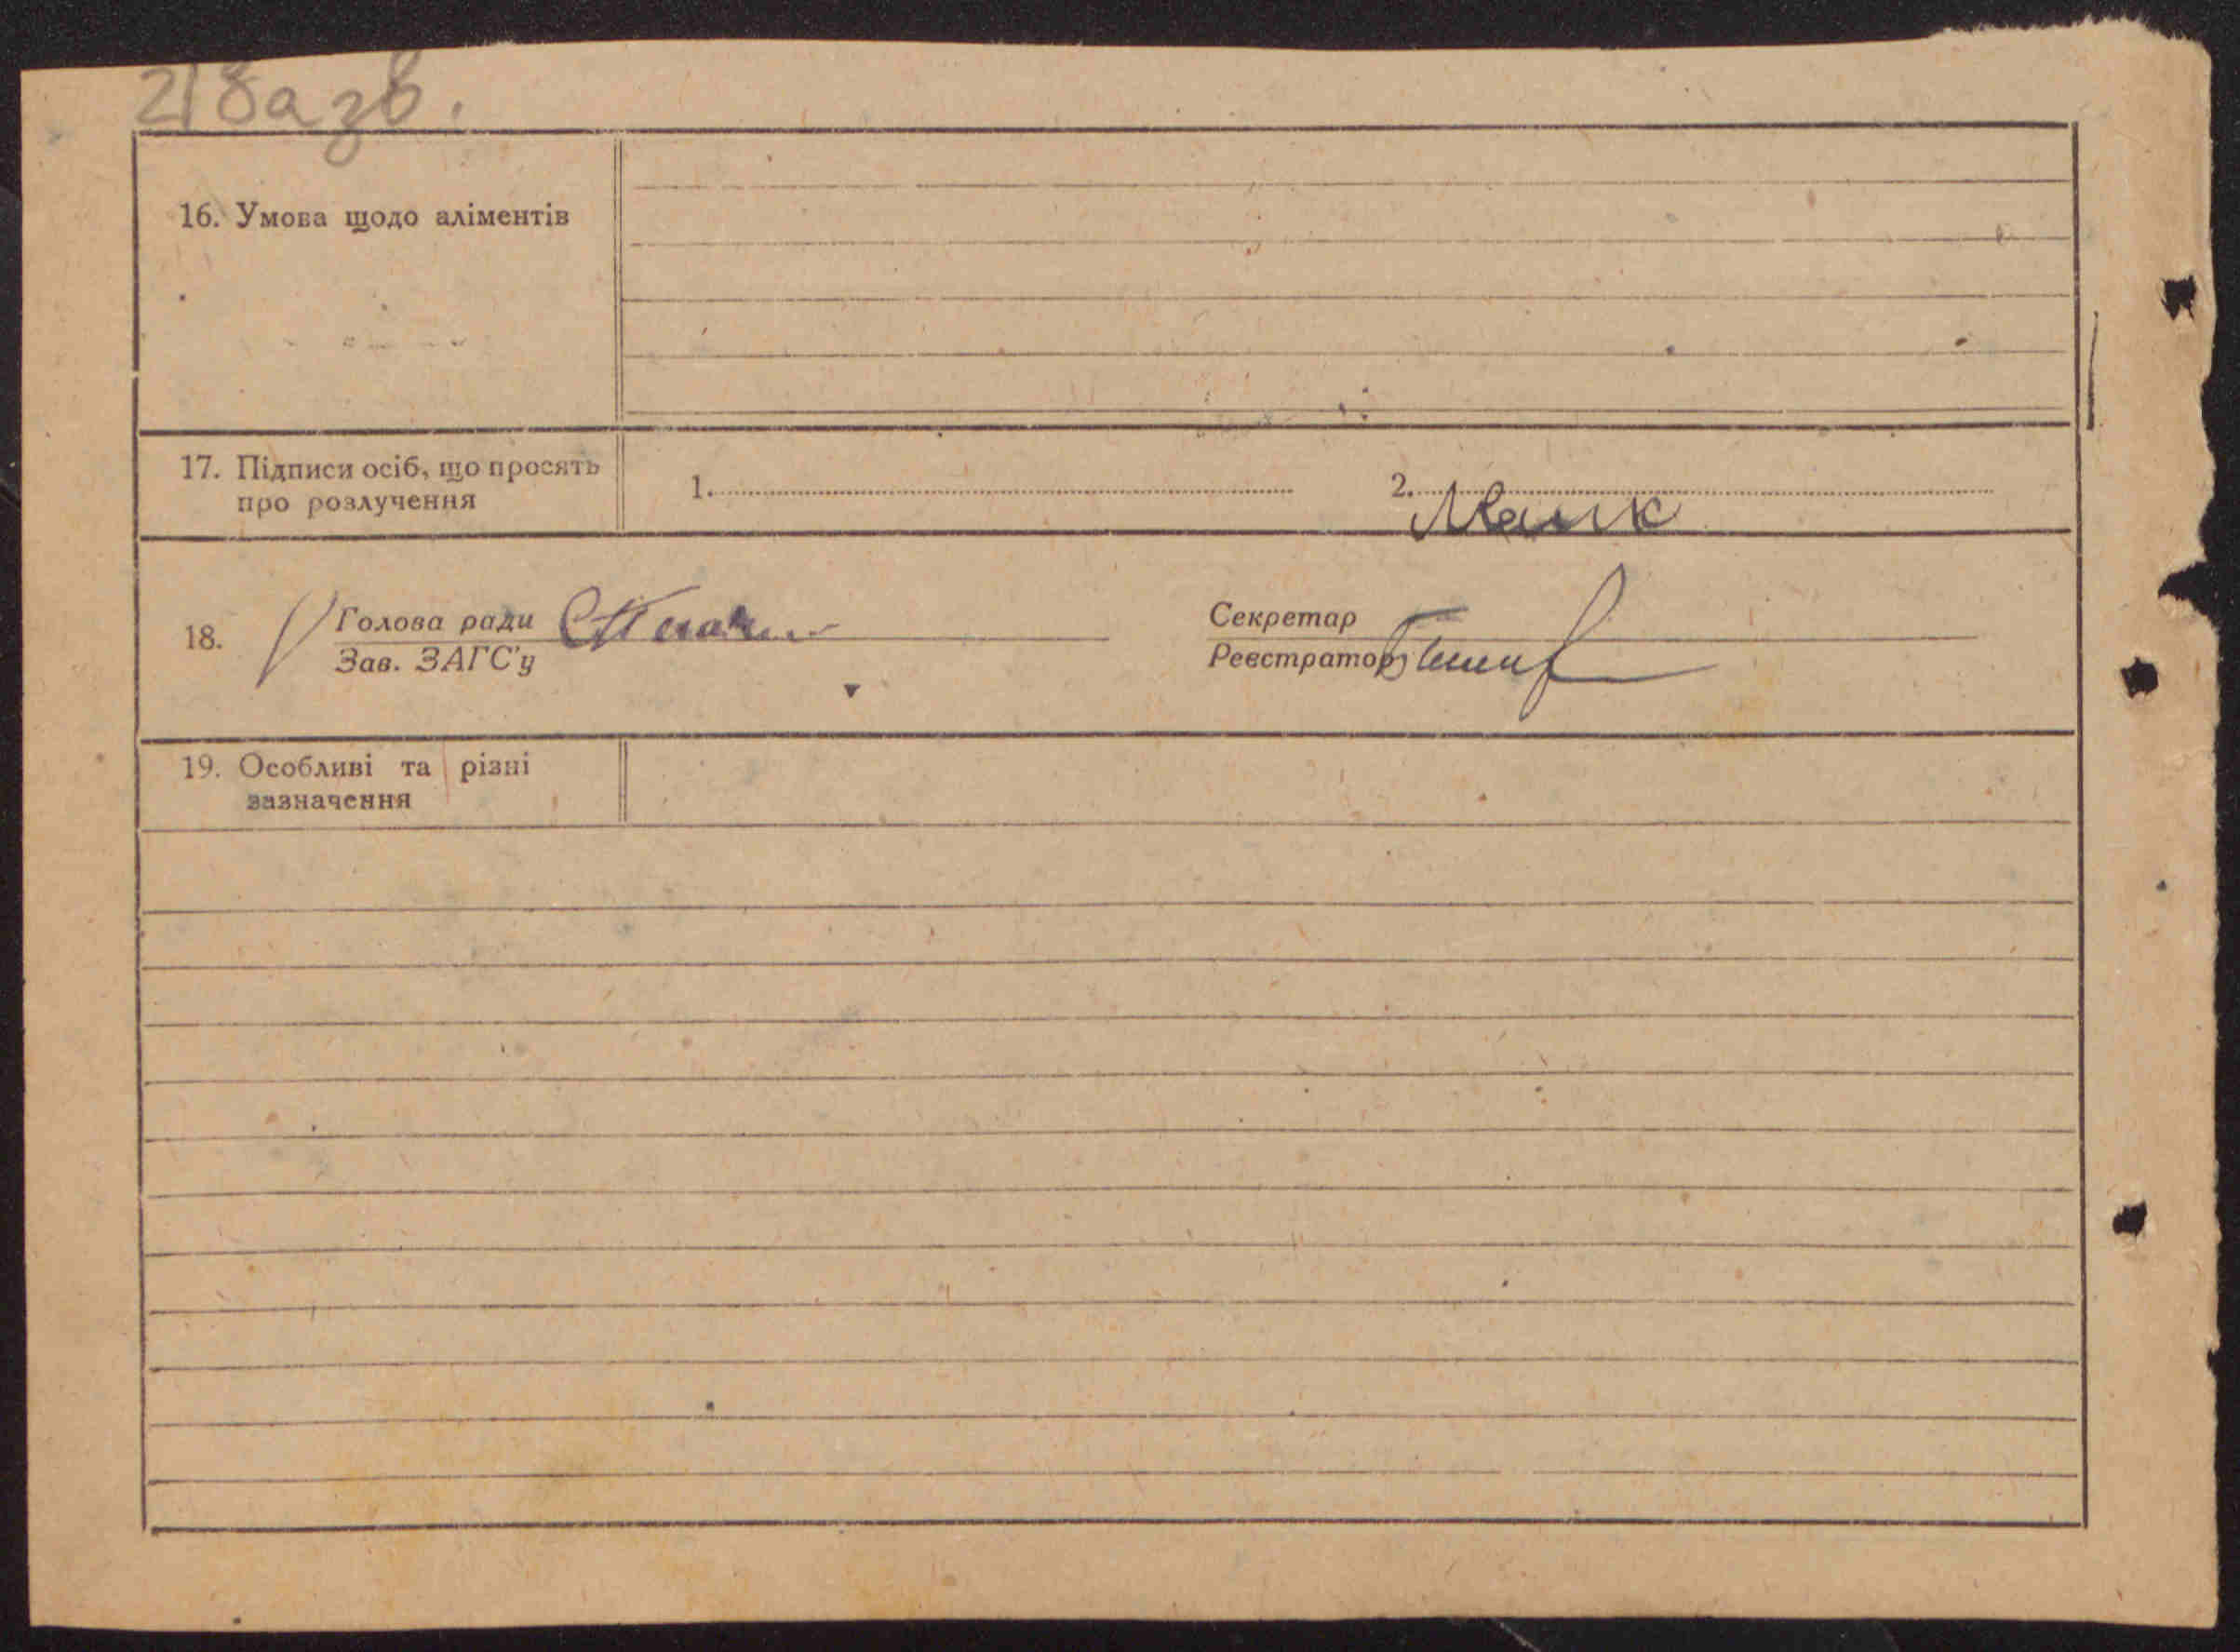 218а зв.
16. Умова щодо аліментів
17. Підписи осіб, що просять
про розлучення
1.
2.
18.
Голова ради
Зав. ЗАГС'у
Секретар
Реєстратор
19. Особливі та різні
зазначення